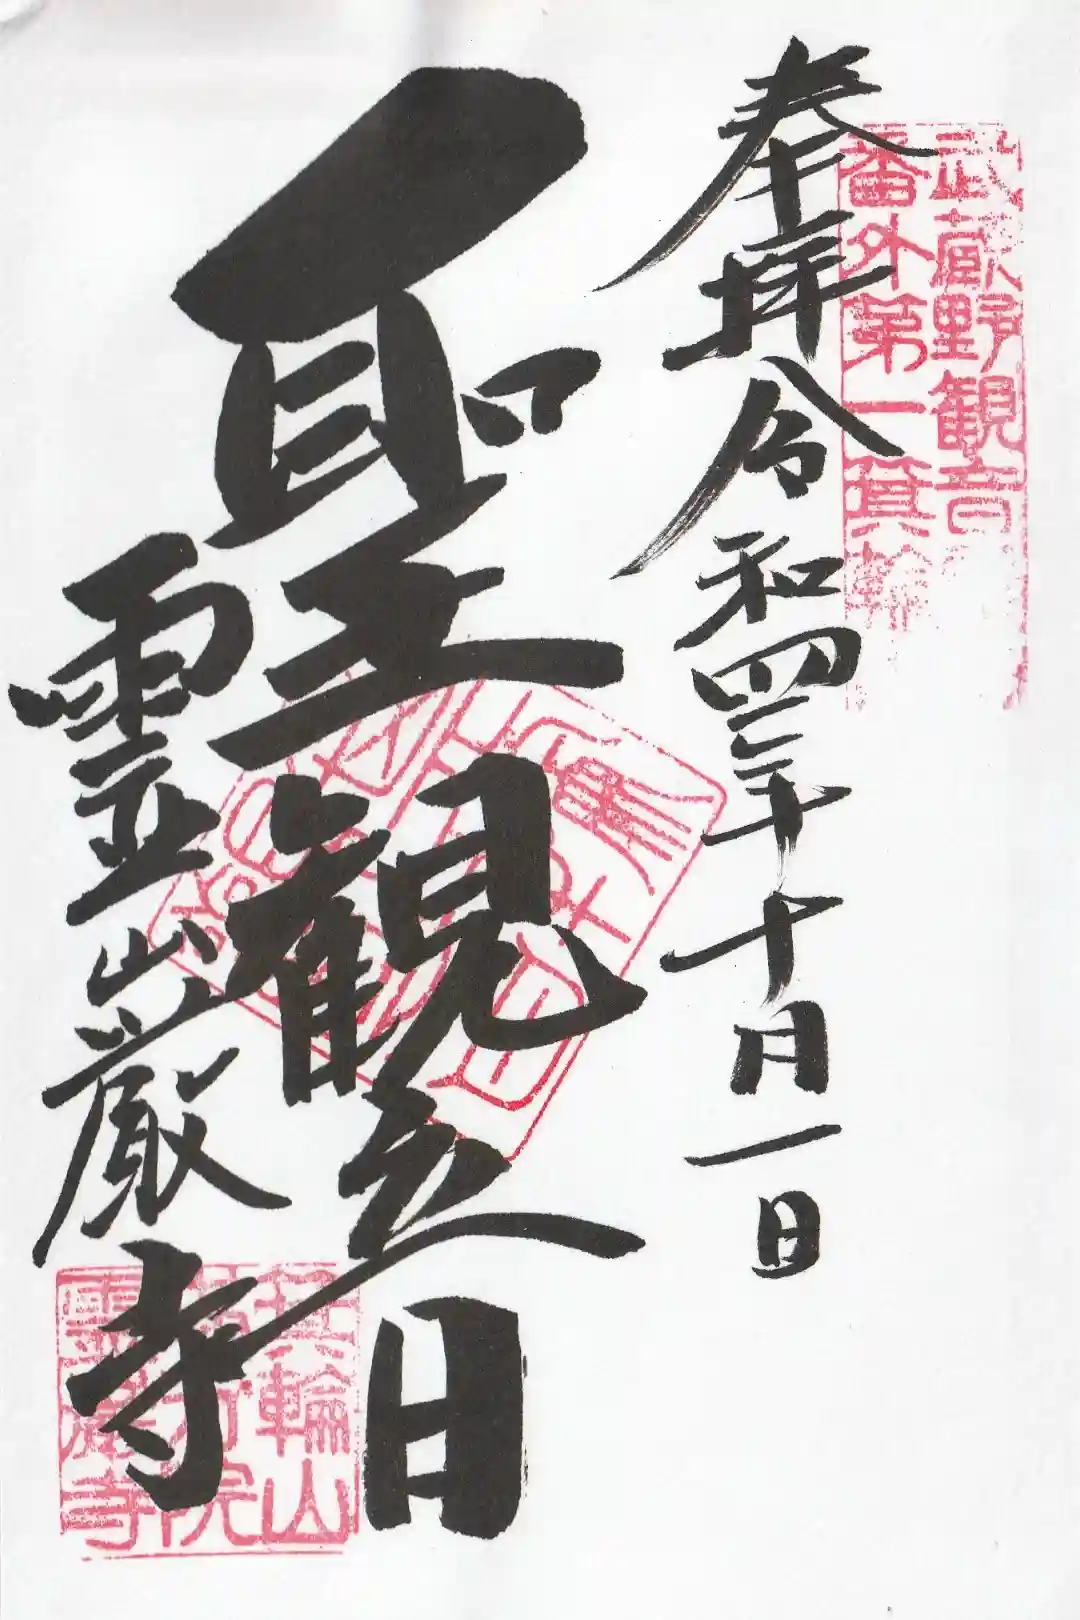 武蔵野観音
番外第一箕輪
奉拝 令和四年十月一日
聖観音
靈巌寺
箕輪山
院
靈巌寺